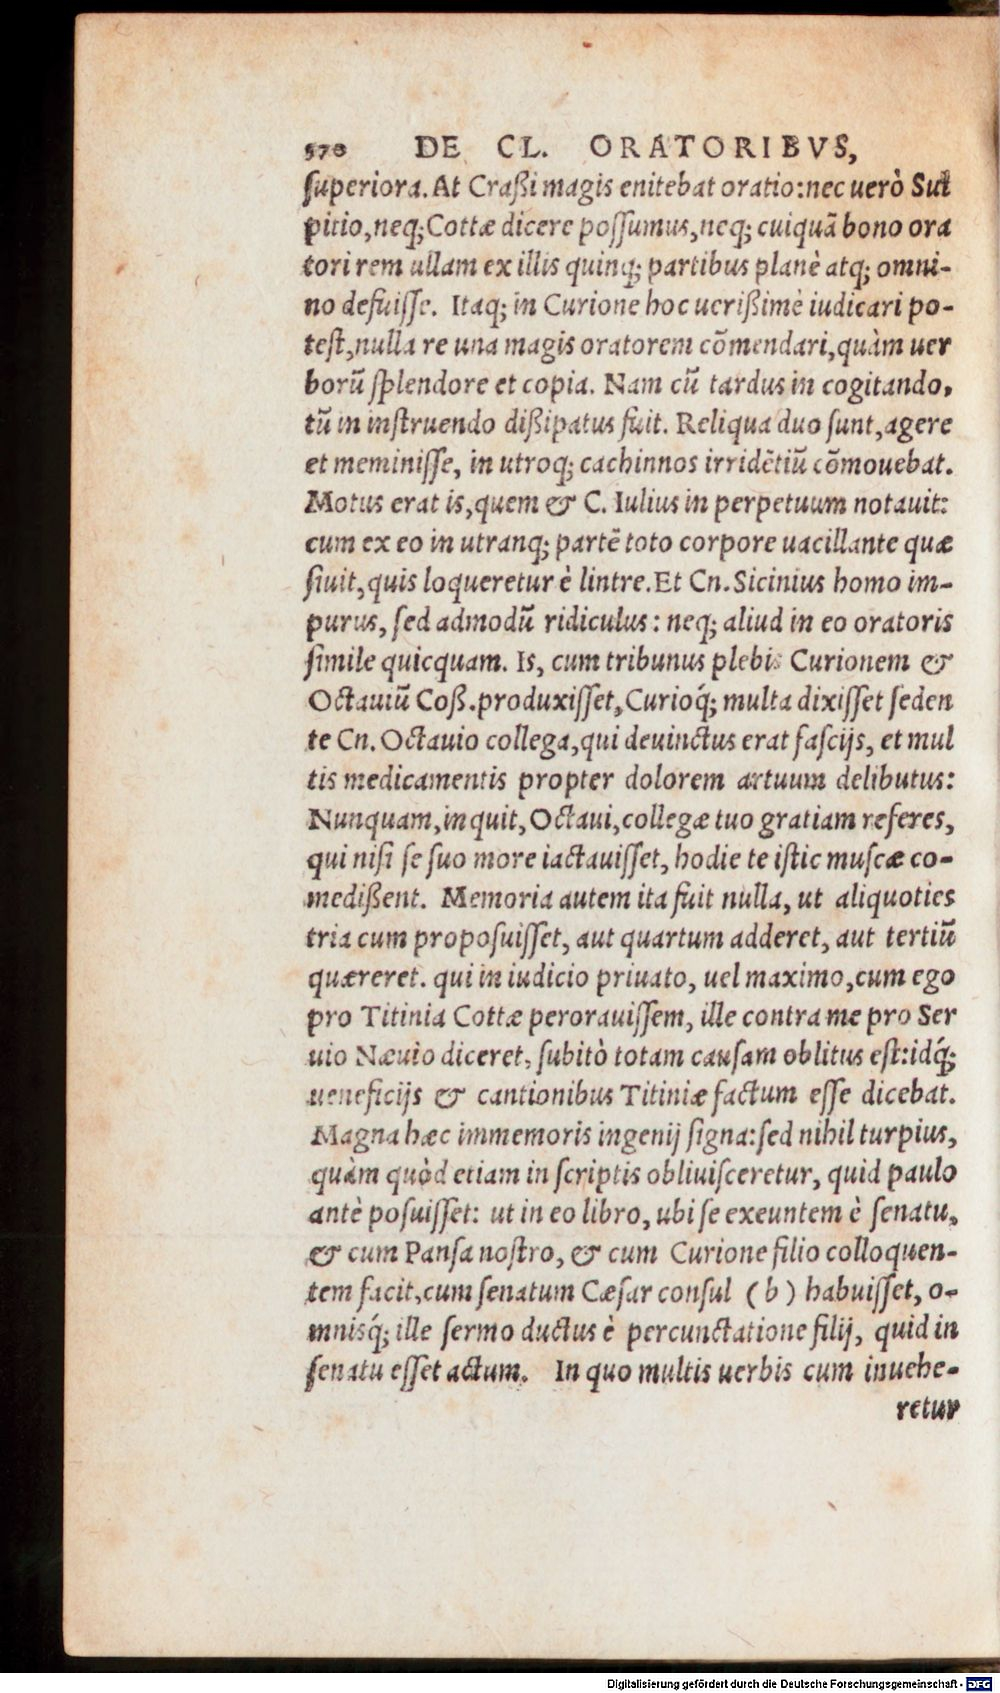 570 DE CL. ORATORIBVS,
ſuperiora. At Craßi magis enitebat oratio: nec uerò Sul
pitio, neq; Cottæ dicere poſſumus, neq; cuiquã bono ora
tori rem ullam ex illis quinq; partibus planè atq; omni-
no defuiſſe. Itaq; in Curione hoc uerißimè iudicari po-
teſt, nulla re una magis oratorem cõmendari, quàm uer
borũ ſplendore et copia. Nam cũ tardus in cogitando,
tũ in inſtruendo dißipatus fuit. Reliqua duo ſunt, agere
et meminiſſe, in utroq; cachinnos irridẽtiũ cõmouebat.
Motus erat is, quem & C. Iulius in perpetuum notauit:
cum ex eo in utranq; partẽ toto corpore uacillante quæ
ſiuit, quis loqueretur è lintre. Et Cn. Sicinius homo im-
purus, ſed admodũ ridiculus: neq; aliud in eo oratoris
ſimile quicquam. Is, cum tribunus plebis Curionem &
Octauiũ Coß. produxiſſet, Curioq́; multa dixiſſet ſeden
te Cn. Octauio collega, qui deuinctus erat faſcijs, et mul
tis medicamentis propter dolorem artuum delibutus:
Nunquam, inquit, Octaui, collegæ tuo gratiam referes,
qui niſi ſe ſuo more iactauiſſet, hodie te iſtic muſcæ co-
medißent. Memoria autem ita fuit nulla, ut aliquoties
tria cum propoſuiſſet, aut quartum adderet, aut tertiũ
quæreret. qui in iudicio priuato, uel maximo, cum ego
pro Titinia Cottæ perorauiſſem, ille contra me pro Ser
uio Næuio diceret, ſubitò totam cauſam oblitus eſt: idq́;
ueneficijs & cantionibus Titiniæ factum eſſe dicebat.
Magna hæc immemoris ingenij ſigna: ſed nihil turpius,
quàm quòd etiam in ſcriptis obliuiſceretur, quid paulo
antè poſuiſſet: ut in eo libro, ubi ſe exeuntem è ſenatu,
& cum Panſa noſtro, & cum Curione filio colloquen-
tem facit, cum ſenatum Cæſar conſul (b) habuiſſet, o-
mnisq́; ille ſermo ductus è percunctatione filij, quid in
ſenatu eſſet actum. In quo multis uerbis cum inuehe-
retur
Digitalisierung gefördert durch die Deutsche Forschungsgemeinschaft - DFG